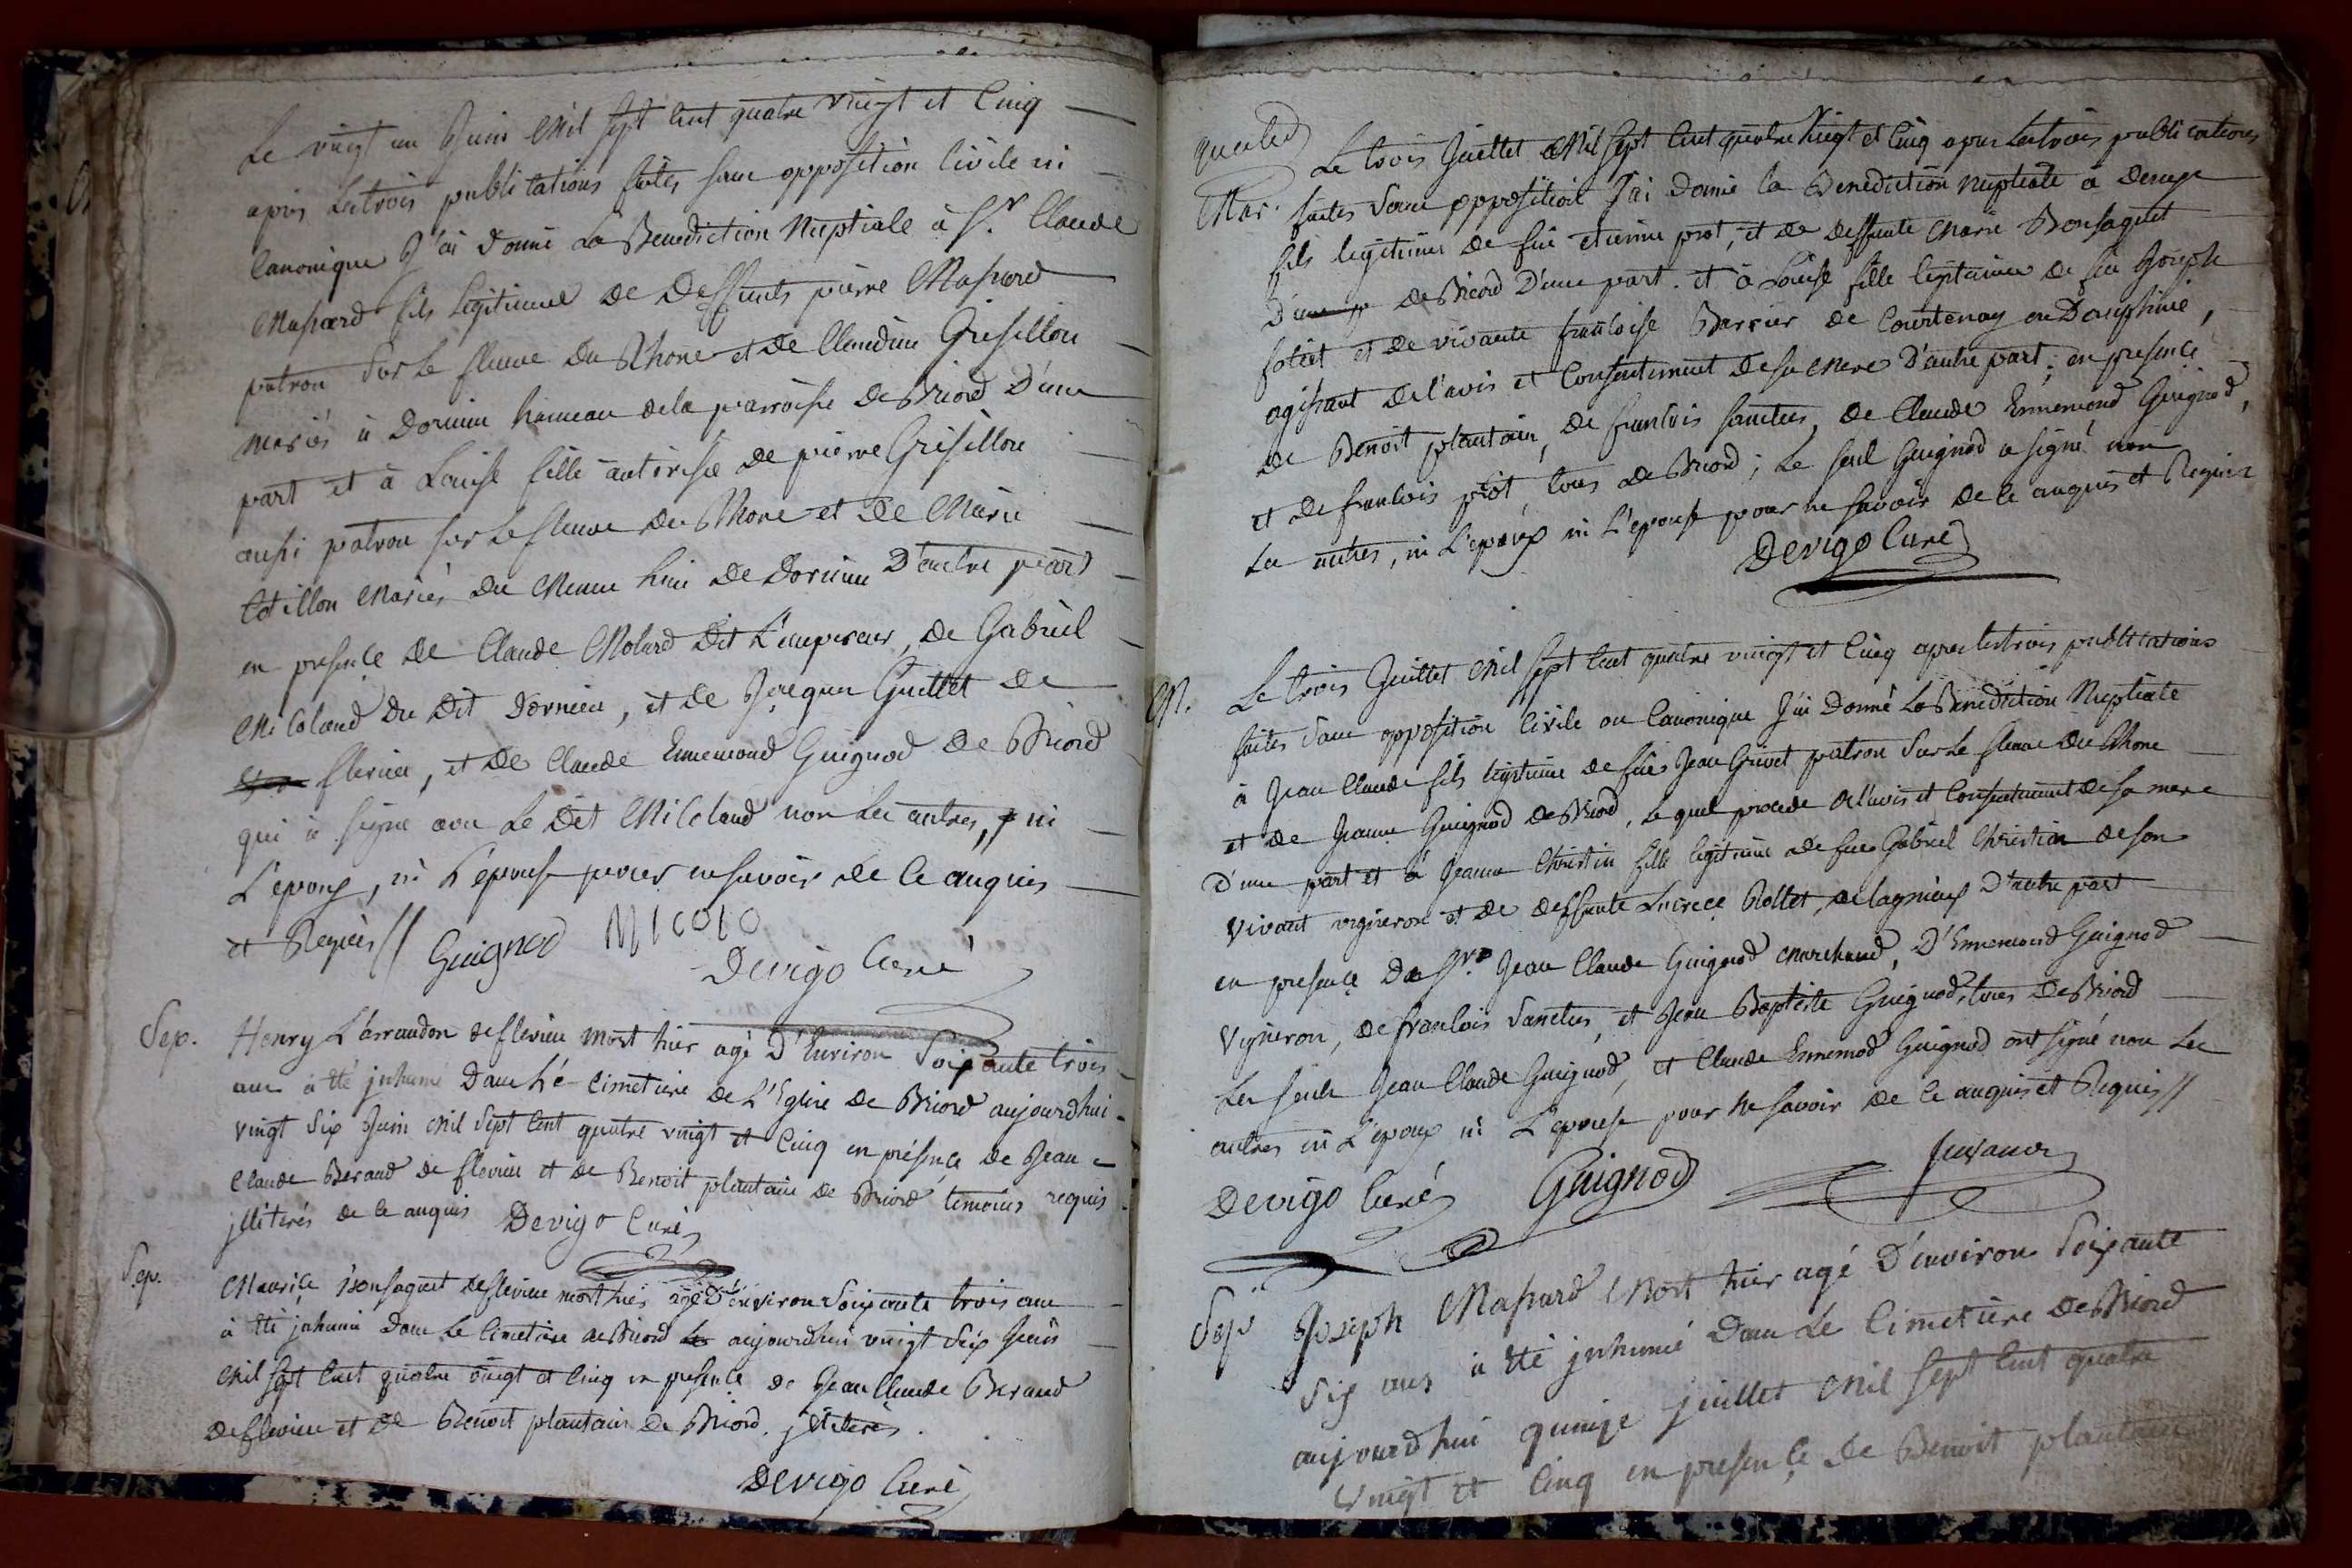 Le vingt un Juin Mil Sept Cent quatre vingt et Cinq
après Les trois publications faites sans opposition Civile ni
Canonique J'ai donné La Benediction Nuptiale à Sr. Claude
Massard fils Legitime de Deffunts pierre Massard
patron Sur Le fleuve Du Rhone et de Claudine Grisillon
Mariés à Dornieu hameau de la parroisse De Briord D'une
part et à Louise fille autorisée de pierre Grisillon
aussi patron sur Le fleuve du Rhone et de Marie
Cotillon Mariés du Meme lieu De Dornieu D'autre part
en presence de Claude Molard Dit L'empereur, de Gabriel
Micoland du Dit Dornieu, et de Jacques Guillet de
flevieu, et de Claude Ennemond Guignod De Briord
qui à signé avec Le Dit Micoland non Les autres, ni
L'epoux, ni L'epouse pour ne savoir de Ce enquis
et Requis //
Guignod MICOLO
Devigo Curé
Sep. Henry Larraudon de flevieu mort hier agé D'Environ Soixante trois
ans à été jnhumé Dans Lé Cimetiere de L'Eglise De Briord aujourdhui
vingt Six Juin Mil Sept Cent quatre vingt et Cinq en présence de Jean
Claude Beraud de flevieu et de Benoit plantain de Briord temoins requis
jlliterés de Ce enquis Devigo Curé
Sep. Maurice Bonsaquet de flevieu mort hier agé D'environ Soixante trois ans
à été jnhumé Dans Le Cimetiere de Briord aujourdhui vingt Six Juin
Mil Sept Cent quatre vingt et Cinq en presence de Jean Claude Beraud
de flevieu et de Benoit plantain de Briord. jlliterés.
Devigo Curé
Mar. Le trois Juillet Mil Sept Cent quatre Vingt et Cinq apres Les trois publications
faites Sans opposition J'ai Donné la Benediction Nuptiale à
fils legitime de feu etienne prot, et de deffunte Marie Bonsaquet
De Briord D'une part. et à Louise fille legitime de feu Joseph
et de vivante françoise Berrier de Courtenay en Dauphiné,
agissant de l'avis et Consentement de sa Mere D'autre part; en presence
de Benoit plantain, de françois sanctus, de Claude Ennemond Guignod,
et de françois prot tous de Briord; Le seul Guignod a signé non
Les autres, ni L'epoux ni L'epouse pour ne savoir de Ce enquis et Requis
Devigo Curé
M. Le trois Juillet Mil Sept Cent quatre vingt et Cinq apres les trois publications
faites Sans opposition Civile ou Canonique J'ai Donné La Benediction Nuptiale
à Jean Claude fils legitime de feu Jean Grivet patron Sur Le fleuve du Rhone
et de Jeanne Guignod de Briord, Lequel procede de l'avis et Consentement de sa mere
D'une part et à Jeanne Christin fille legitime de feu Gabriel Christin de son
vivant vigneron et de deffunte Lucrece Rollet, de lagnieux D'autre part
en presence De Sr. Jean Claude Guignod Marchand, D'Ennemond Guignod
Vigneron, de françois Sanctus, et Jean Baptiste Guignod, tous De Briord
Les seuls Jean Claude Guignod, et Claude Ennemond Guignod ont signé non Les
autres ni L'epoux ni L'epouse pour Ne savoir de Ce enquis et Requis //
Devigo Curé Guignod
Sep. Joseph Massard Mort hier agé D'environ Soixante
Six ans à été jnhumé Dans Le Cimetiere De Briord
aujourdhui quinze juillet Mil Sept Cent quatre
Vingt et Cinq en presence de Benoit plantain